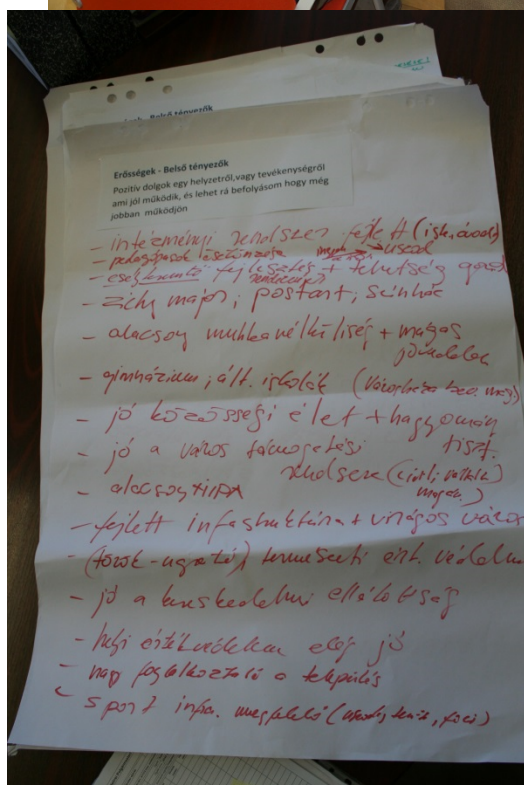 Belső tényezők
Erősségek - Belső tényezők
Pozitív dolgok egy helyzetről,vagy tevékenységről
ami jól működik, és lehet rá befolyásom hogy még
jobban működjön
- intézményi rendszer fejlett (isk, óvod)
- pedagógusok
- fejlesztés + tehetség gond
- Zichy major, postart, színház
- alacsony munkanélküliség + magas
jövedelem
- gimnázium, ált. iskolák (városháza
- jó közösségi élet + hagyomány
tiszt.
- jó a város támogatási
rendszere (civil,
- alacsony
- fejlett infastruktúra + virágos város
- (török-ugrató) természeti ért. védelme
- jó a kereskedelmi ellátottság
- helyi értékvédelem elég jó
- nagy foglalkoztató a település
- sport infra. megfelelő (uszoda, tenisz, foci)